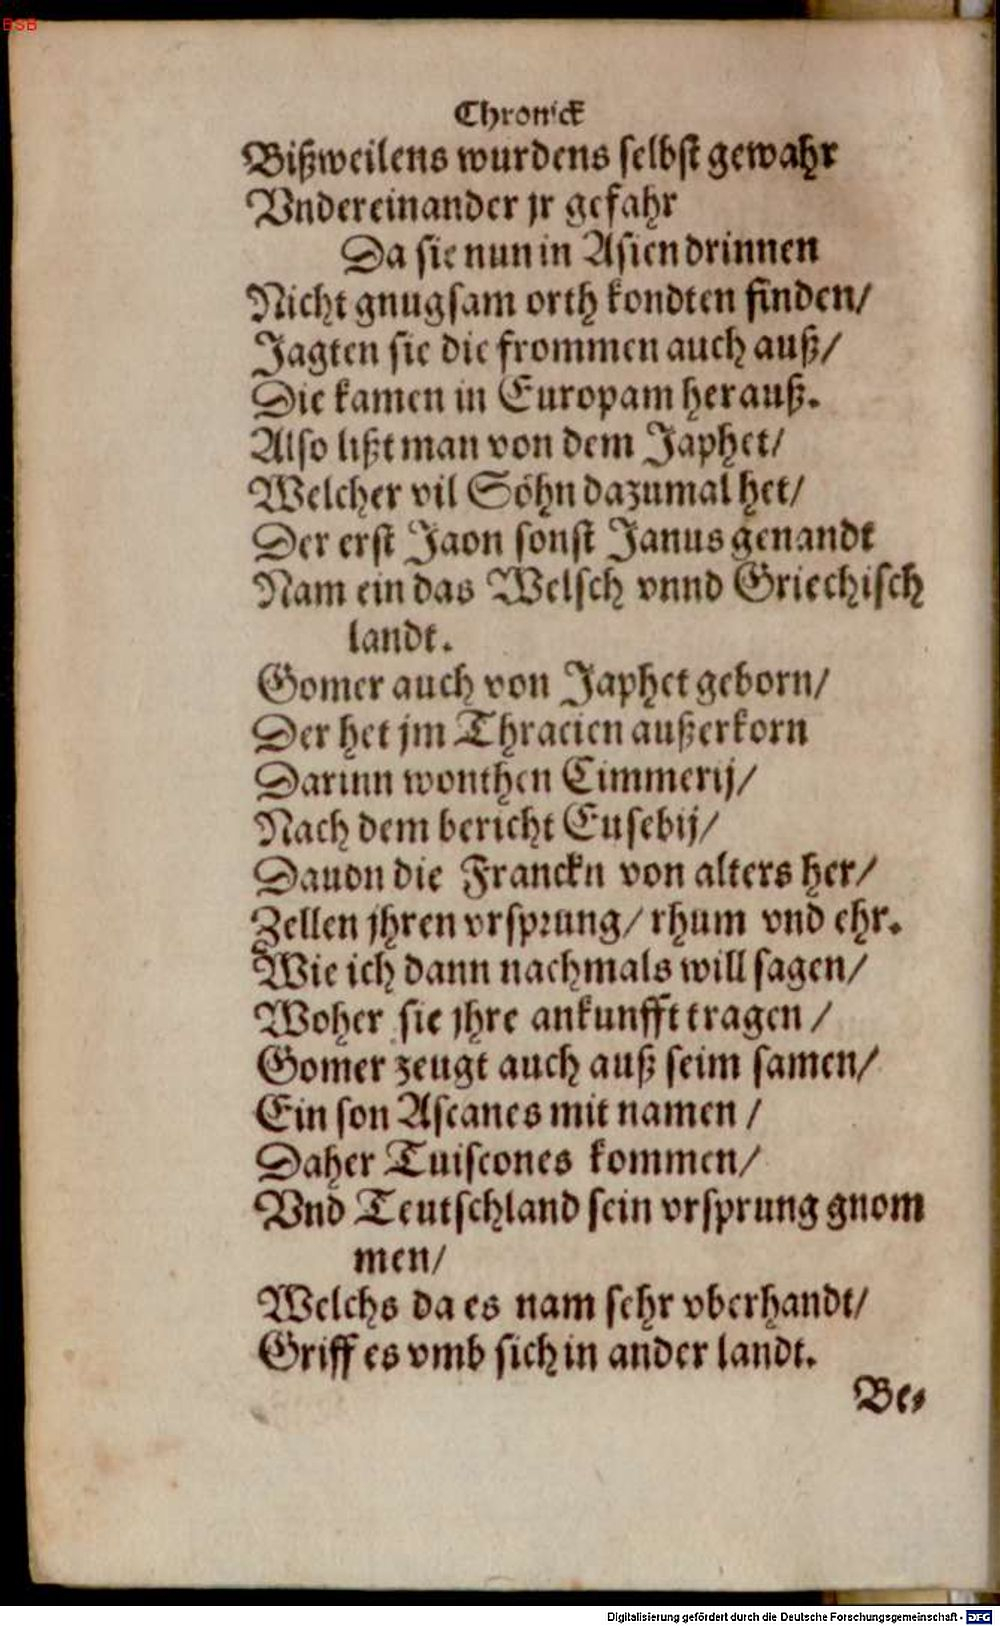 BSB
Chronick
Bißweilens wurdens selbst gewahr
Vndereinander jr gefahr
Da sie nun in Asien drinnen
Nicht gnugsam orth kondten finden/
Jagten sie die frommen auch auß/
Die kamen in Europam herauß.
Also lißt man von dem Japhet/
Welcher vil Söhn dazumal het/
Der erst Jaon sonst Janus genandt
Nam ein das Welsch vnnd Griechisch
landt.
Gomer auch von Japhet geborn/
Der het jm Thracien außerkorn
Darinn wonthen Cimmerij/
Nach dem bericht Eusebij/
Dauon die Franckn von alters her/
Zellen jhren vrsprung/ rhum vnd ehr.
Wie ich dann nachmals will sagen/
Woher sie jhre ankunfft tragen /
Gomer zeugt auch auß seim samen/
Ein son Ascanes mit namen /
Daher Tuiscones kommen/
Vnd Teutschland sein vrsprung gnom
men/
Welchs da es nam sehr vberhandt/
Griff es vmb sich in ander landt.
Be-
Digitalisierung gefördert durch die Deutsche Forschungsgemeinschaft - DFG